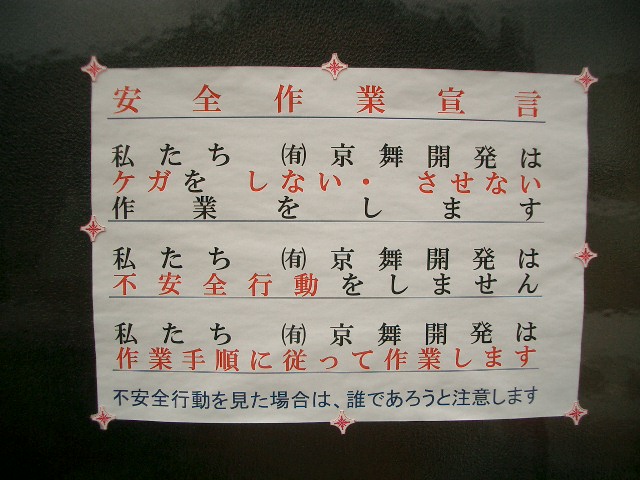 安全作業宣言
私たち ㈲京舞開発は
ケガを しない・ させない
作業をします
私たち ㈲京舞開発は
不安全行動をしません
私たち ㈲京舞開発は
作業手順に従って作業します
不安全行動を見た場合は、誰であろうと注意します